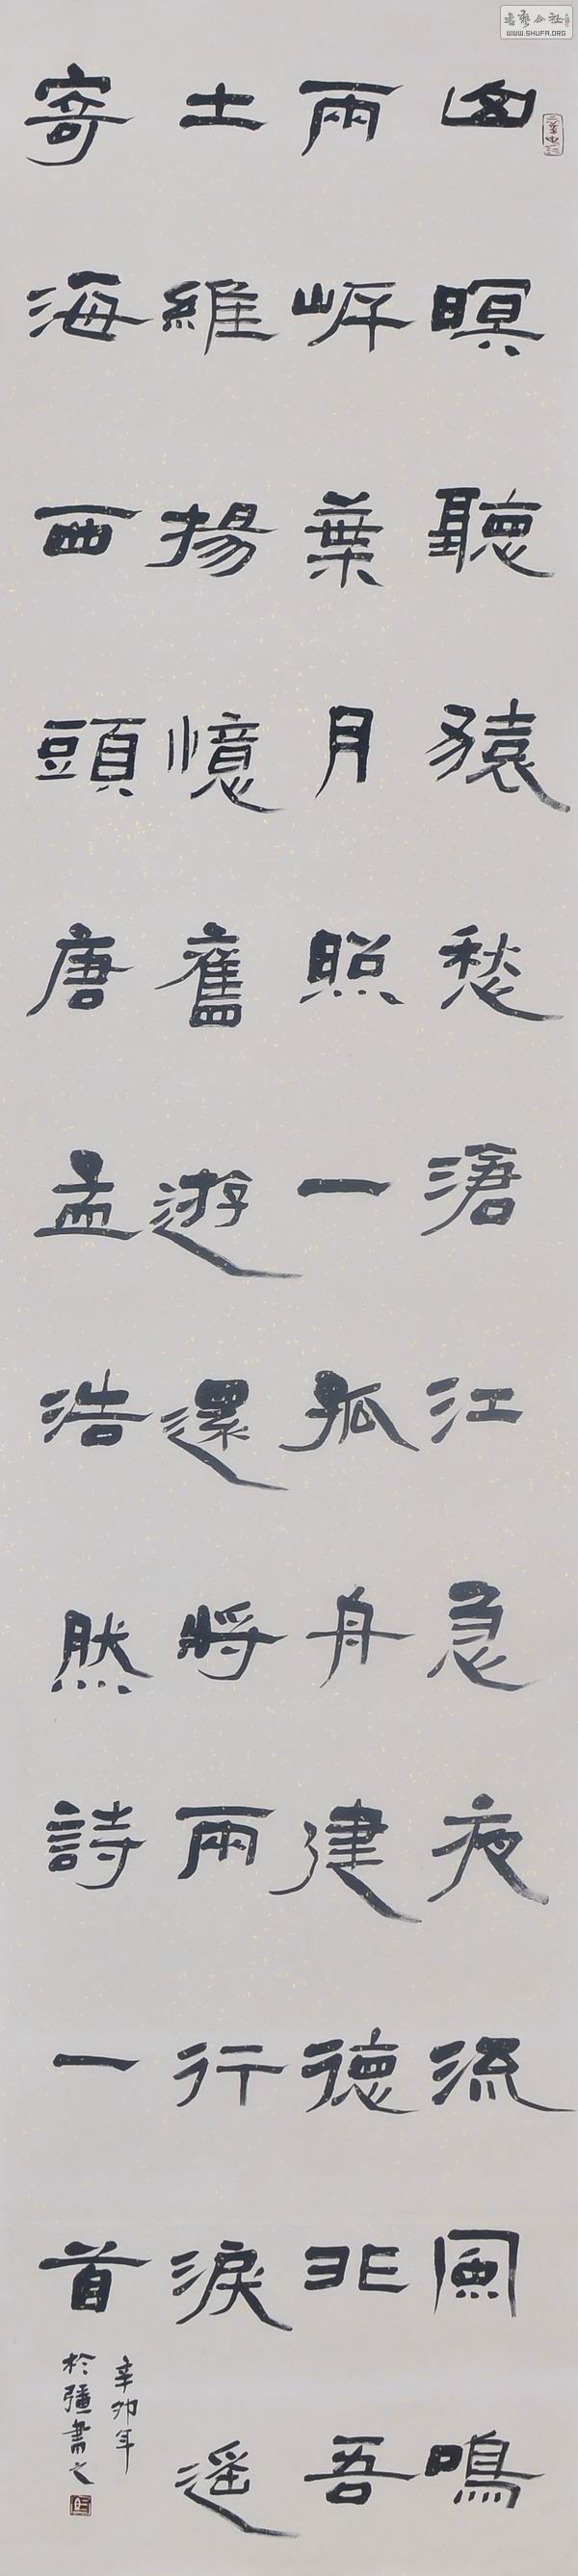 山暝聽猿愁滄江急夜流風鳴
兩岸葉月照一孤舟建德非吾
土維揚憶舊遊還將兩行淚遥
寄海西頭唐孟浩然詩一首
辛卯年
於疆書之
WWW.SHUFA.ORG